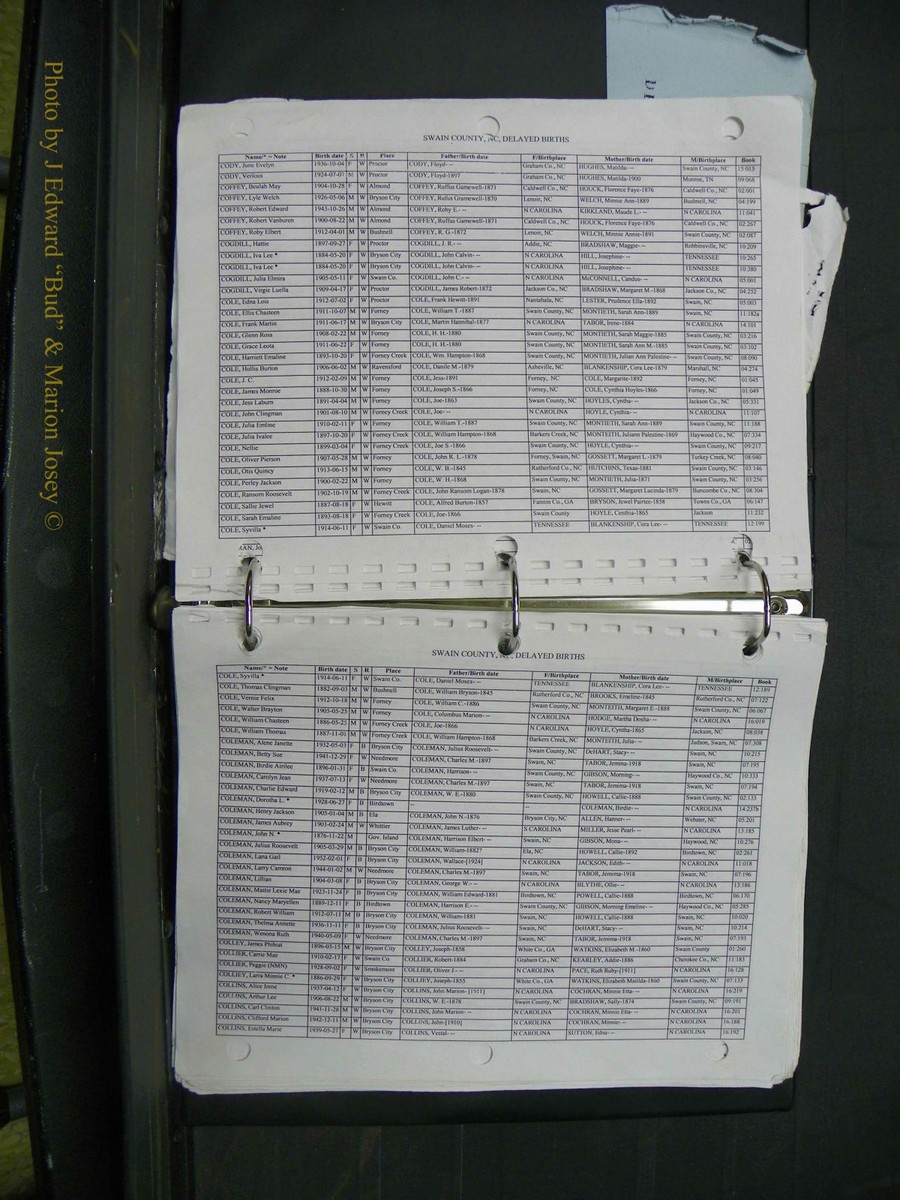 Photo by J Edward "Bud" & Marion Josey ©
SWAIN COUNTY, NC, DELAYED BIRTHS
Name/* = Note Birth date S R Place Father/Birth date F/Birthplace Mother/Birth date M/Birthplace Book
CODY, June Evelyn 1936-10-04 F W Proctor CODY, Floyd- -- Graham Co., NC HUGHES, Matilda- -- Swain County, NC 15:015
CODY, Verious 1924-07-07 M W Proctor CODY, Floyd-1897 Graham Co., NC HUGHES, Matilda-1900 Monroe, TN 09:068
COFFEY, Beulah May 1904-10-28 F W Almond COFFEY, Rufus Gamewell-1871 Caldwell Co., NC HOUCK, Florence Faye-1876 Caldwell Co., NC 02:001
COFFEY, Lyle Welch 1926-05-06 M W Bryson City COFFEY, Rufus Gamewell-1870 Lenoir, NC WELCH, Minnie Ann-1889 Bushnell, NC 04:199
COFFEY, Robert Edward 1943-10-26 M W Almond COFFEY, Roby E.- -- N CAROLINA KIRKLAND, Maude L.- -- N CAROLINA 11:041
COFFEY, Robert Vanburen 1900-08-22 M W Almond COFFEY, Rufus Gamewell-1871 Caldwell Co., NC HOUCK, Florence Faye-1876 Caldwell Co., NC 02:267
COFFEY, Roby Elbert 1912-04-01 M W Bushnell COFFEY, R. G.-1872 Lenoir, NC WELCH, Minnie Annie-1891 Swain County, NC 02:087
COGDILL, Hattie 1897-09-27 F W Proctor COGDILL, J. R.- -- Addie, NC BRADSHAW, Maggie- -- Robbinsville, NC 10:209
COGDILL, Iva Lee * 1884-05-20 F W Bryson City COGDILL, John Calvin- -- N CAROLINA HILL, Josephine- -- TENNESSEE 10:265
COGDILL, Iva Lee * 1884-05-20 F W Bryson City COGDILL, John Calvin- -- N CAROLINA HILL, Josephine- -- TENNESSEE 10:380
COGDILL, Julia Elmira 1905-05-11 F W Swain Co. COGDILL, John C.- -- N CAROLINA McCONNELL, Candus- -- N CAROLINA 05:001
COGDILL, Virgie Luella 1909-04-17 F W Proctor COGDILL, James Robert-1872 Jackson Co., NC BRADSHAW, Margaret M.-1868 Jackson Co., NC 04:252
COLE, Edna Lois 1912-07-02 F W Proctor COLE, Frank Hewitt-1891 Nantahala, NC LESTER, Prudence Ella-1892 Swain, NC 05:003
COLE, Ellis Chasteen 1911-10-07 M W Forney COLE, William T.-1887 Swain County, NC MONTIETH, Sarah Ann-1889 Swain, NC 11:182a
COLE, Frank Martin 1911-06-17 M W Bryson City COLE, Martin Hannibal-1877 N CAROLINA TABOR, Irene-1884 N CAROLINA 14:101
COLE, Glenn Ross 1908-02-22 M W Forney COLE, H. H.-1880 Swain County, NC MONTIETH, Sarah Maggie-1885 Swain County, NC 03:216
COLE, Grace Leota 1911-06-22 F W Forney COLE, H. H.-1880 Swain County, NC MONTIETH, Sarah Ann M.-1885 Swain County, NC 03:102
COLE, Harriett Emaline 1893-10-20 F W Forney Creek COLE, Wm. Hampton-1868 Swain County, NC MONTIETH, Julian Ann Palestine- -- Swain County, NC 08:090
COLE, Hollis Burton 1906-06-02 M W Ravensford COLE, Danile M.-1879 Asheville, NC BLANKENSHIP, Cora Lee-1879 Marshall, NC 04:274
COLE, J. C. 1912-02-09 M W Forney COLE, Jess-1891 Forney, NC COLE, Margarite-1892 Forney, NC 01:045
COLE, James Monroe 1888-10-30 M W Forney COLE, Joseph S.-1866 Forney, NC COLE, Cynthia Hoyles-1866 Forney, NC 01:049
COLE, Jess Laburn 1891-04-04 M W Forney COLE, Joe-1863 Swain County, NC HOYLES, Cyntha- -- Jackson Co., NC 05:331
COLE, John Clingman 1901-08-10 M W Forney Creek COLE, Joe- -- N CAROLINA HOYLE, Cynthia- -- N CAROLINA 11:107
COLE, Julia Emline 1910-02-11 F W Forney COLE, William T.-1887 Swain County, NC MONTIETH, Sarah Ann-1889 Swain County, NC 11:188
COLE, Julia Ivalee 1897-10-20 F W Forney Creek COLE, William Hampton-1868 Barkers Creek, NC MONTEITH, Juliann Palestine-1869 Haywood Co., NC 07:334
COLE, Nellie 1899-03-04 F W Forney Creek COLE, Joe S.-1866 Swain County, NC HOYLE, Cynthia- -- Swain County, NC 09:217
COLE, Oliver Pierson 1907-05-28 M W Forney COLE, John R. L.-1878 Forney, Swain, NC GOSSETT, Margaret L.-1879 Turkey Creek, NC 08:040
COLE, Otis Quincy 1913-06-15 M W Forney COLE, W. B.-1845 Rutherford Co., NC HUTCHINS, Texas-1881 Swain County, NC 03:146
COLE, Perley Jackson 1900-02-22 M W Forney COLE, W. H.-1868 Swain County, NC MONTIETH, Julia-1871 Swain County, NC 03:256
COLE, Ransom Roosevelt 1902-10-19 M W Forney Creek COLE, John Ransom Logan-1878 Swain, NC GOSSETT, Margaret Lucinda-1879 Buncombe Co., NC 08:304
COLE, Sallie Jewel 1887-08-18 F W Hewitt COLE, Alfred Burton-1857 Fannin Co., GA BRYSON, Jewel Pairlee-1858 Towns Co., GA 06:147
COLE, Sarah Emaline 1893-08-18 F W Forney Creek COLE, Joe-1866 Swain County HOYLE, Cynthia-1865 Jackson 11:232
COLE, Syvilla * 1914-06-11 F W Swain Co. COLE, Daniel Moses- -- TENNESSEE BLANKENSHIP, Cora Lee- -- TENNESSEE 12:199
SWAIN COUNTY, NC, DELAYED BIRTHS
Name/* = Note Birth date S R Place Father/Birth date F/Birthplace Mother/Birth date M/Birthplace Book
COLE, Syvilla * 1914-06-11 F W Swain Co. COLE, Daniel Moses- -- TENNESSEE BLANKENSHIP, Cora Lee- -- TENNESSEE 12:189
COLE, Thomas Clingman 1882-09-03 M W Bushnell COLE, William Bryson-1845 Rutherford Co., NC BROOKS, Emeline-1845 Rutherford Co., NC 07:122
COLE, Vernie Felix 1912-10-18 M W Forney COLE, William C.-1886 Swain County, NC MONTEITH, Margaret E.-1888 Swain County, NC 06:067
COLE, Walter Brayton 1905-05-25 M W Forney COLE, Columbus Marion- -- N CAROLINA HODGE, Martha Dosha- -- N CAROLINA 16:019
COLE, William Chasteen 1886-05-25 M W Forney Creek COLE, Joe-1866 N CAROLINA HOYLE, Cynthia-1865 Jackson, NC 08:038
COLE, William Thomas 1887-11-01 M W Forney Creek COLE, William Hampton-1868 Barkers Creek, NC MONTEITH, Julia- -- Judson, Swain, NC 07:308
COLEMAN, Alene Janette 1932-05-03 F B Bryson City COLEMAN, Julius Roosevelt- -- Swain County, NC DeHART, Stacy- -- Swain, NC 10:215
COLEMAN, Betty Sue 1941-12-29 F W Needmore COLEMAN, Charles M.-1897 Swain, NC TABOR, Jemima-1918 Swain, NC 07:195
COLEMAN, Birdie Airilee 1896-01-31 F B Swain Co. COLEMAN, Harrison- -- Swain County, NC GIBSON, Morning- -- Haywood Co., NC 10:333
COLEMAN, Carolyn Jean 1937-07-13 F W Needmore COLEMAN, Charles M.-1897 Swain, NC TABOR, Jemima-1918 Swain, NC 07:194
COLEMAN, Charlie Edward 1919-02-12 M B Bryson City COLEMAN, W. E.-1880 Swain County, NC HOWELL, Callie-1888 Swain County, NC 02:133
COLEMAN, Dorotha L. * 1928-06-27 F B Birdtown -- -- COLEMAN, Birdie- -- N CAROLINA 14:237b
COLEMAN, Henry Jackson 1905-01-04 M B Ela COLEMAN, John N.-1876 Bryson City, NC ALLEN, Hanner- -- Webster, NC 05:201
COLEMAN, James Aubrey 1903-02-24 M W Whittier COLEMAN, James Luther- -- S CAROLINA MILLER, Jesse Pearl- -- N CAROLINA 13:185
COLEMAN, John N. * 1876-11-22 M Gov. Island COLEMAN, Harrison Elbem- -- Swain, NC GIBSON, Mona- -- Haywood, NC 10:276
COLEMAN, Julius Roosevelt 1905-03-29 M B Bryson City COLEMAN, William-1882? Ela, NC HOWELL, Callie-1892 Birdtown, NC 02:261
COLEMAN, Lana Gail 1952-02-01 F B Bryson City COLEMAN, Wallace-[1924] N CAROLINA JACKSON, Edith- -- N CAROLINA 11:018
COLEMAN, Larry Camron 1944-01-02 M W Needmore COLEMAN, Charles M.-1897 Swain, NC TABOR, Jemima-1918 Swain, NC 07:196
COLEMAN, Lillian 1904-03-08 F B Bryson City COLEMAN, George W.- -- N CAROLINA BLYTHE, Ollie- -- N CAROLINA 13:186
COLEMAN, Mattie Lexie Mae 1923-11-24 F B Bryson City COLEMAN, William Edward-1881 Birdtown, NC POWELL, Callie-1888 Birdtown, NC 06:170
COLEMAN, Nancy Maryellen 1889-12-11 F B Birdtown COLEMAN, Harrison E.- -- Swain County, NC GIBSON, Morning Emeline- -- Haywood Co., NC 05:285
COLEMAN, Robert William 1912-07-11 M B Bryson City COLEMAN, William-1881 Swain, NC HOWELL, Callie-1888 Swain, NC 10:020
COLEMAN, Thelma Annette 1936-11-11 F B Bryson City COLEMAN, Julius Roosevelt- -- Swain, NC DeHART, Stacy- -- Swain, NC 10:214
COLEMAN, Wenona Ruth 1940-05-09 F W Needmore COLEMAN, Charles M.-1897 Swain, NC TABOR, Jemima-1918 Swain, NC 07:193
COLLEY, James Philoat 1896-03-15 M W Bryson City COLLEY, Joseph-1858 White Co., GA WATKINS, Elizabeth M.-1860 Swain County 01:260
COLLIER, Carrie Mae 1910-02-17 F W Swain Co. COLLIER, Robert-1884 Graham Co., NC KEARLEY, Addie-1886 Cherokee Co., NC 11:183
COLLIER, Peggie (NMN) 1928-09-02 F W Smokemont COLLIER, Oliver J.- -- N CAROLINA PACE, Ruth Ruby-[1911] N CAROLINA 16:128
COLLIEY, Larra Minnie C. * 1886-09-29 F W Bryson City COLLIEY, Joseph-1855 White Co., GA WATKINS, Elizabeth Matilda-1860 Swain County, NC 07:133
COLLINS, Alice Irene 1937-04-12 F W Bryson City COLLINS, John Marion- [1911] N CAROLINA COCHRAN, Minnie Etta- -- N CAROLINA 16:219
COLLINS, Arthur Lee 1906-08-22 M W Bryson City COLLINS, W. E.-1878 Swain County, NC BRADSHAW, Sally-1874 Swain County, NC 09:191
COLLINS, Carl Clinton 1941-11-28 M W Bryson City COLLINS, John Marion- -- N CAROLINA COCHRAN, Minnie Etta- -- N CAROLINA 16:201
COLLINS, Clifford Marion 1942-12-11 M W Bryson City COLLINS, John-[1910] N CAROLINA COCHRAN, Minnie- -- N CAROLINA 16:188
COLLINS, Estella Marie 1939-05-27 F W Bryson City COLLINS, Vestal- -- N CAROLINA SUTTON, Edna- -- N CAROLINA 16:192